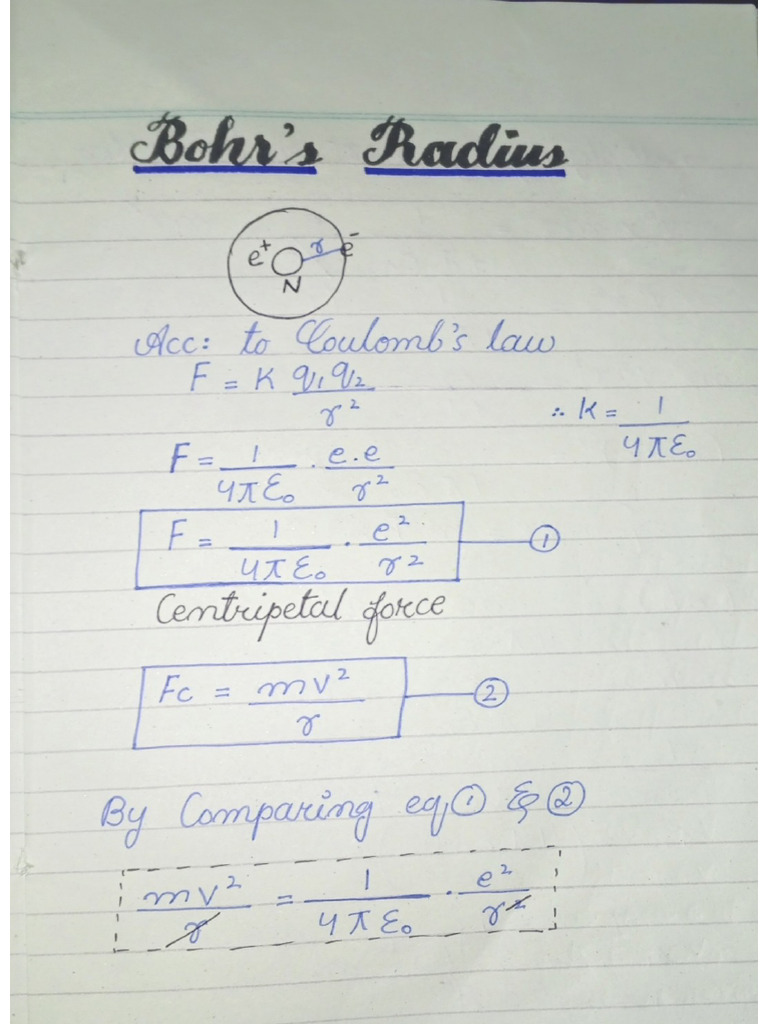 Bohr's Radius
e⁺ r e⁻
N
Acc: to Coulomb's law
F = K q₁ q₂ / r²
∴ K = 1 / 4πε₀
F = 1 / 4πε₀ . e.e / r²
F = 1 / 4πε₀ . e² / r² ①
Centripetal force
Fc = mv² / r ②
By Comparing eq ① & ②
mv² / r = 1 / 4πε₀ . e² / r²